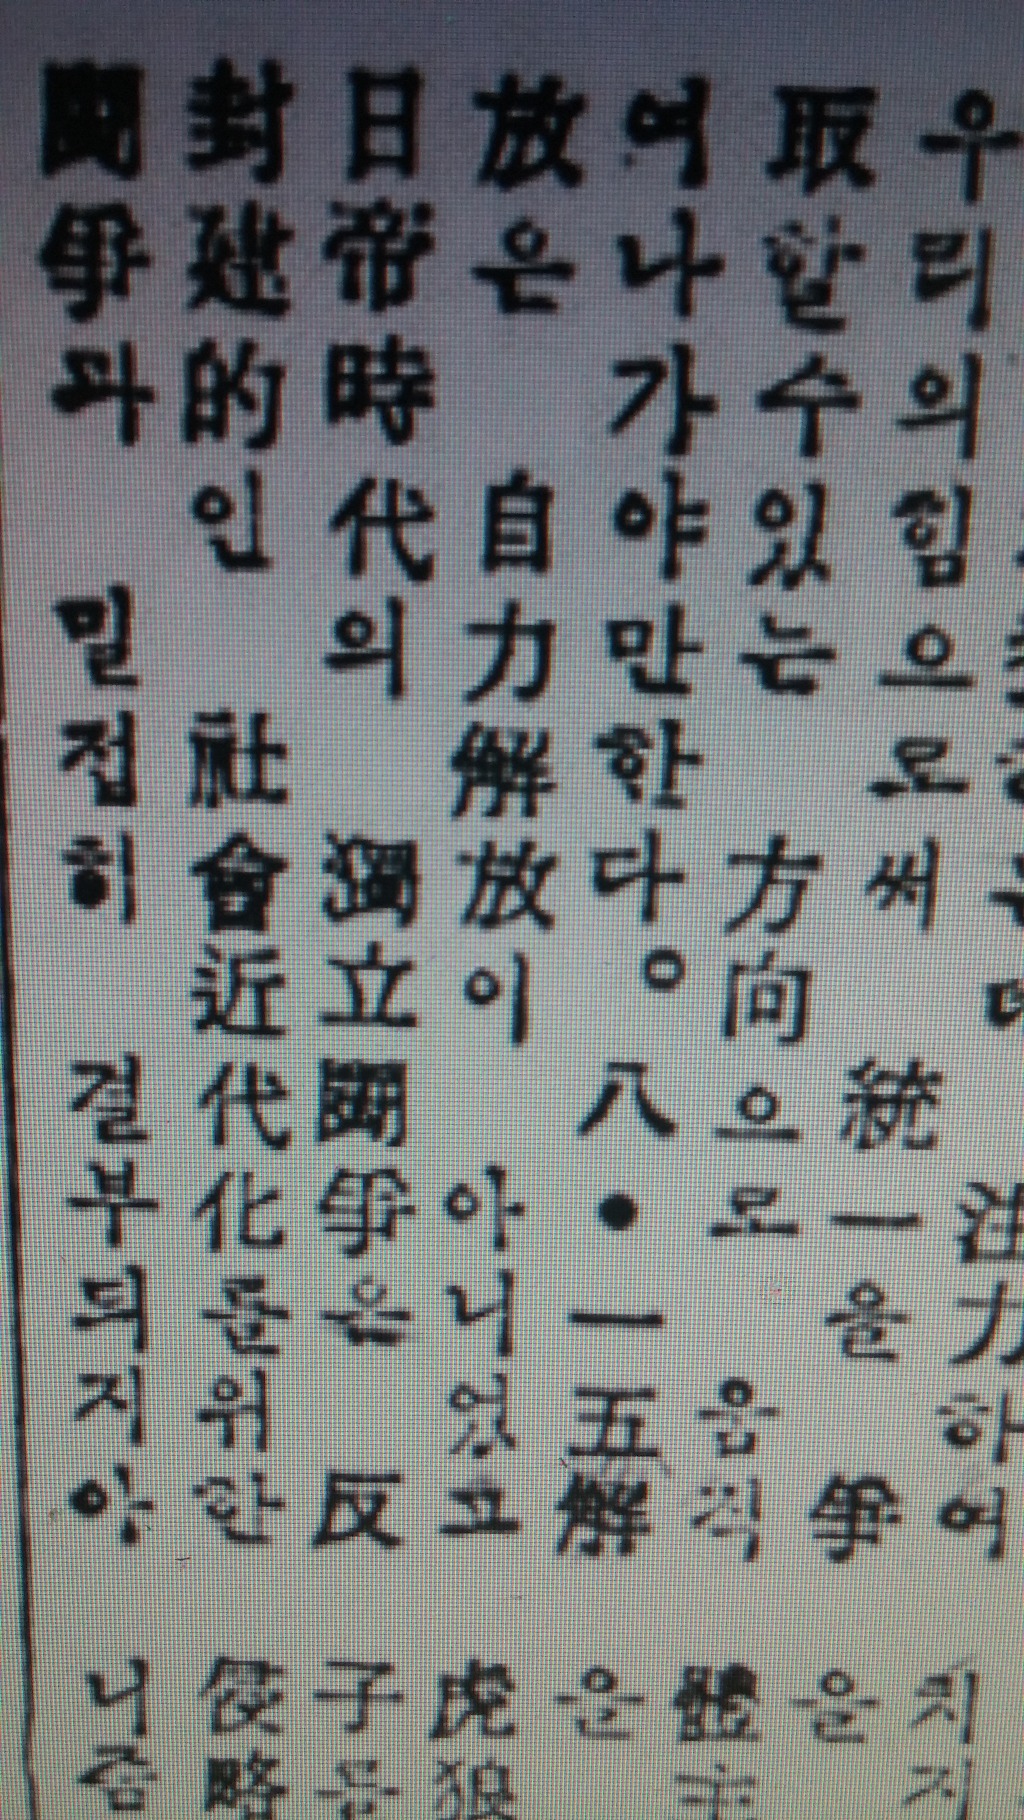 注力하여
우리의힘으로써 統一을 爭
取할수있는 方向으로 움직
여나가야만한다。 八●一五解
放은 自力解放이 아니었고
日帝時代의 獨立鬪爭은 反
封建的인 社會近代化를위한
鬪爭과 밀접히 결부되지않
을
은
虎狼
子
侵略
니